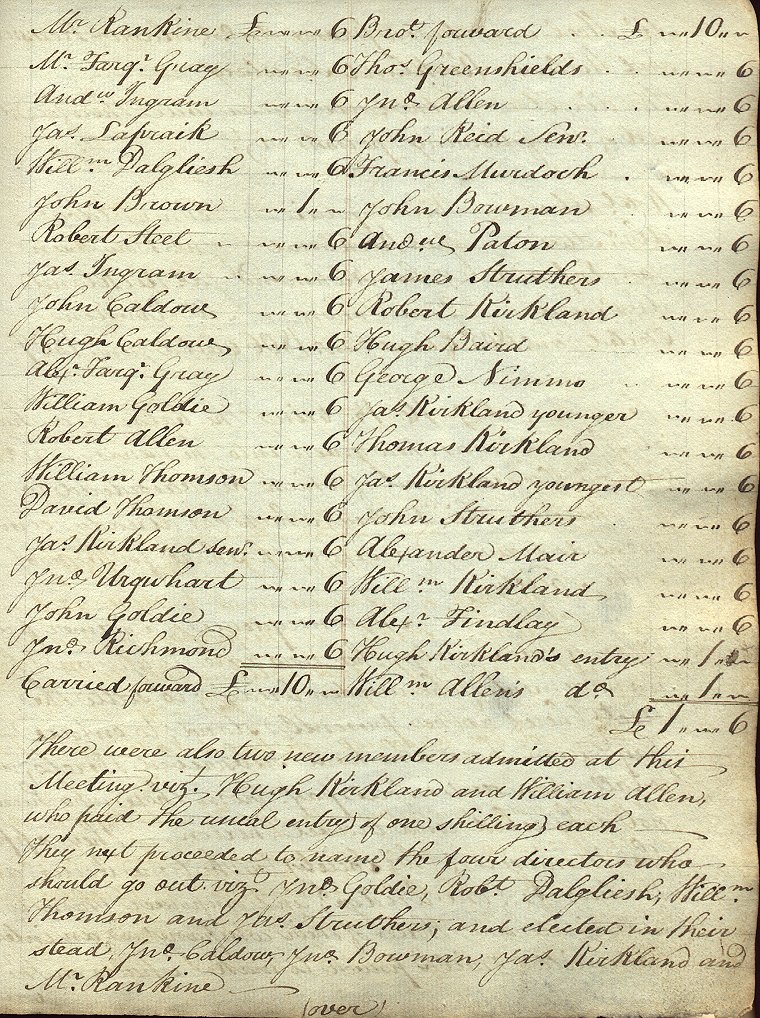 Mr. Rankine £ " " 6
Mr. Farqr. Gray " " 6
Andw. Ingram " " 6
Jas. Lapraik " " 6
Willm. Dalgliesh " " 6
John Brown " 1 "
Robert Steel " " 6
Jas. Ingram " " 6
John Caldow " " 6
Hugh Caldow " " 6
Alexr. Farqr. Gray " " 6
William Goldie " " 6
Robert Allen " " 6
William Thomson " " 6
David Thomson " " 6
Jas. Kirkland senr. " " 6
Jno. Urquhart " " 6
John Goldie " " 6
Jno. Richmond " " 6
Carried forward £ " 10 "
Brot. forward £ " 10 "
Thos. Greenshields " " 6
Jno. Allen " " 6
John Reid Senr. " " 6
Francis Murdoch " " 6
John Bowman " " 6
Andw. Paton " " 6
James Struthers " " 6
Robert Kirkland " " 6
Hugh Baird " " 6
George Nimmo " " 6
Jas. Kirkland younger " " 6
Thomas Kirkland " " 6
Jas. Kirkland youngest " " 6
John Struthers " " 6
Alexander Mair " " 6
Willm. Kirkland " " 6
Alexr. Findlay " " 6
Hugh Kirkland's entry " 1 "
Willm. Allen's do. " 1 "
£ 1 " " 6
There were also two new members admitted at this
Meeting vizt. Hugh Kirkland and William Allen,
who paid the usual entry of one shilling each
They next proceeded to name the four directors who
should go out vizt. Jno. Goldie, Robt. Dalgliesh, Willm.
Thomson and Jas. Struthers; and elected in their
stead, Jno. Caldow, Jno. Bowman, Jas. Kirkland and
Mr. Rankine
(over)